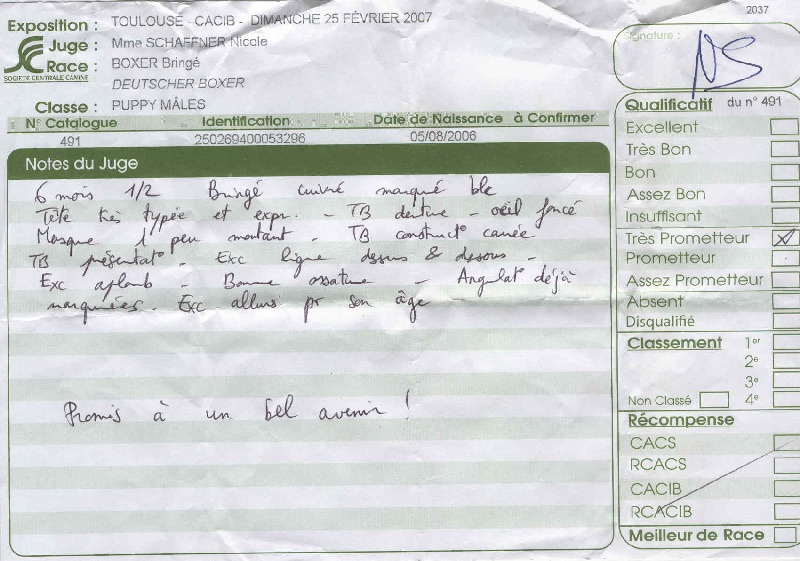 2037
Exposition : TOULOUSE - CACIB - DIMANCHE 25 FÉVRIER 2007
Juge : Mme SCHAFFNER Nicole
Race : BOXER Bringé
SOCIÉTÉ CENTRALE CANINE
DEUTSCHER BOXER
Classe : PUPPY MÂLES
N° Catalogue Identification Date de Naissance à Confirmer
491 250269400053296 05/08/2006
Notes du Juge
6 mois 1/2 Bringé cuivré marqué blc
Tête très typée et expr. - TB denture - oeil foncé
Masque 1 peu montant - TB construct° carrée
TB présentat° - Exc ligne dessus & dessous -
Exc aplomb - Bonne ossature - Angulat° déjà
marquées. Exc allures pr son âge
Promis à un bel avenir !
Signature :
NS
Qualificatif du n° 491
Excellent
Très Bon
Bon
Assez Bon
Insuffisant
Très Prometteur X
Prometteur
Assez Prometteur
Absent
Disqualifié
Classement 1er
2e
3e
Non Classé 4e
Récompense
CACS
RCACS
CACIB
RCACIB
Meilleur de Race